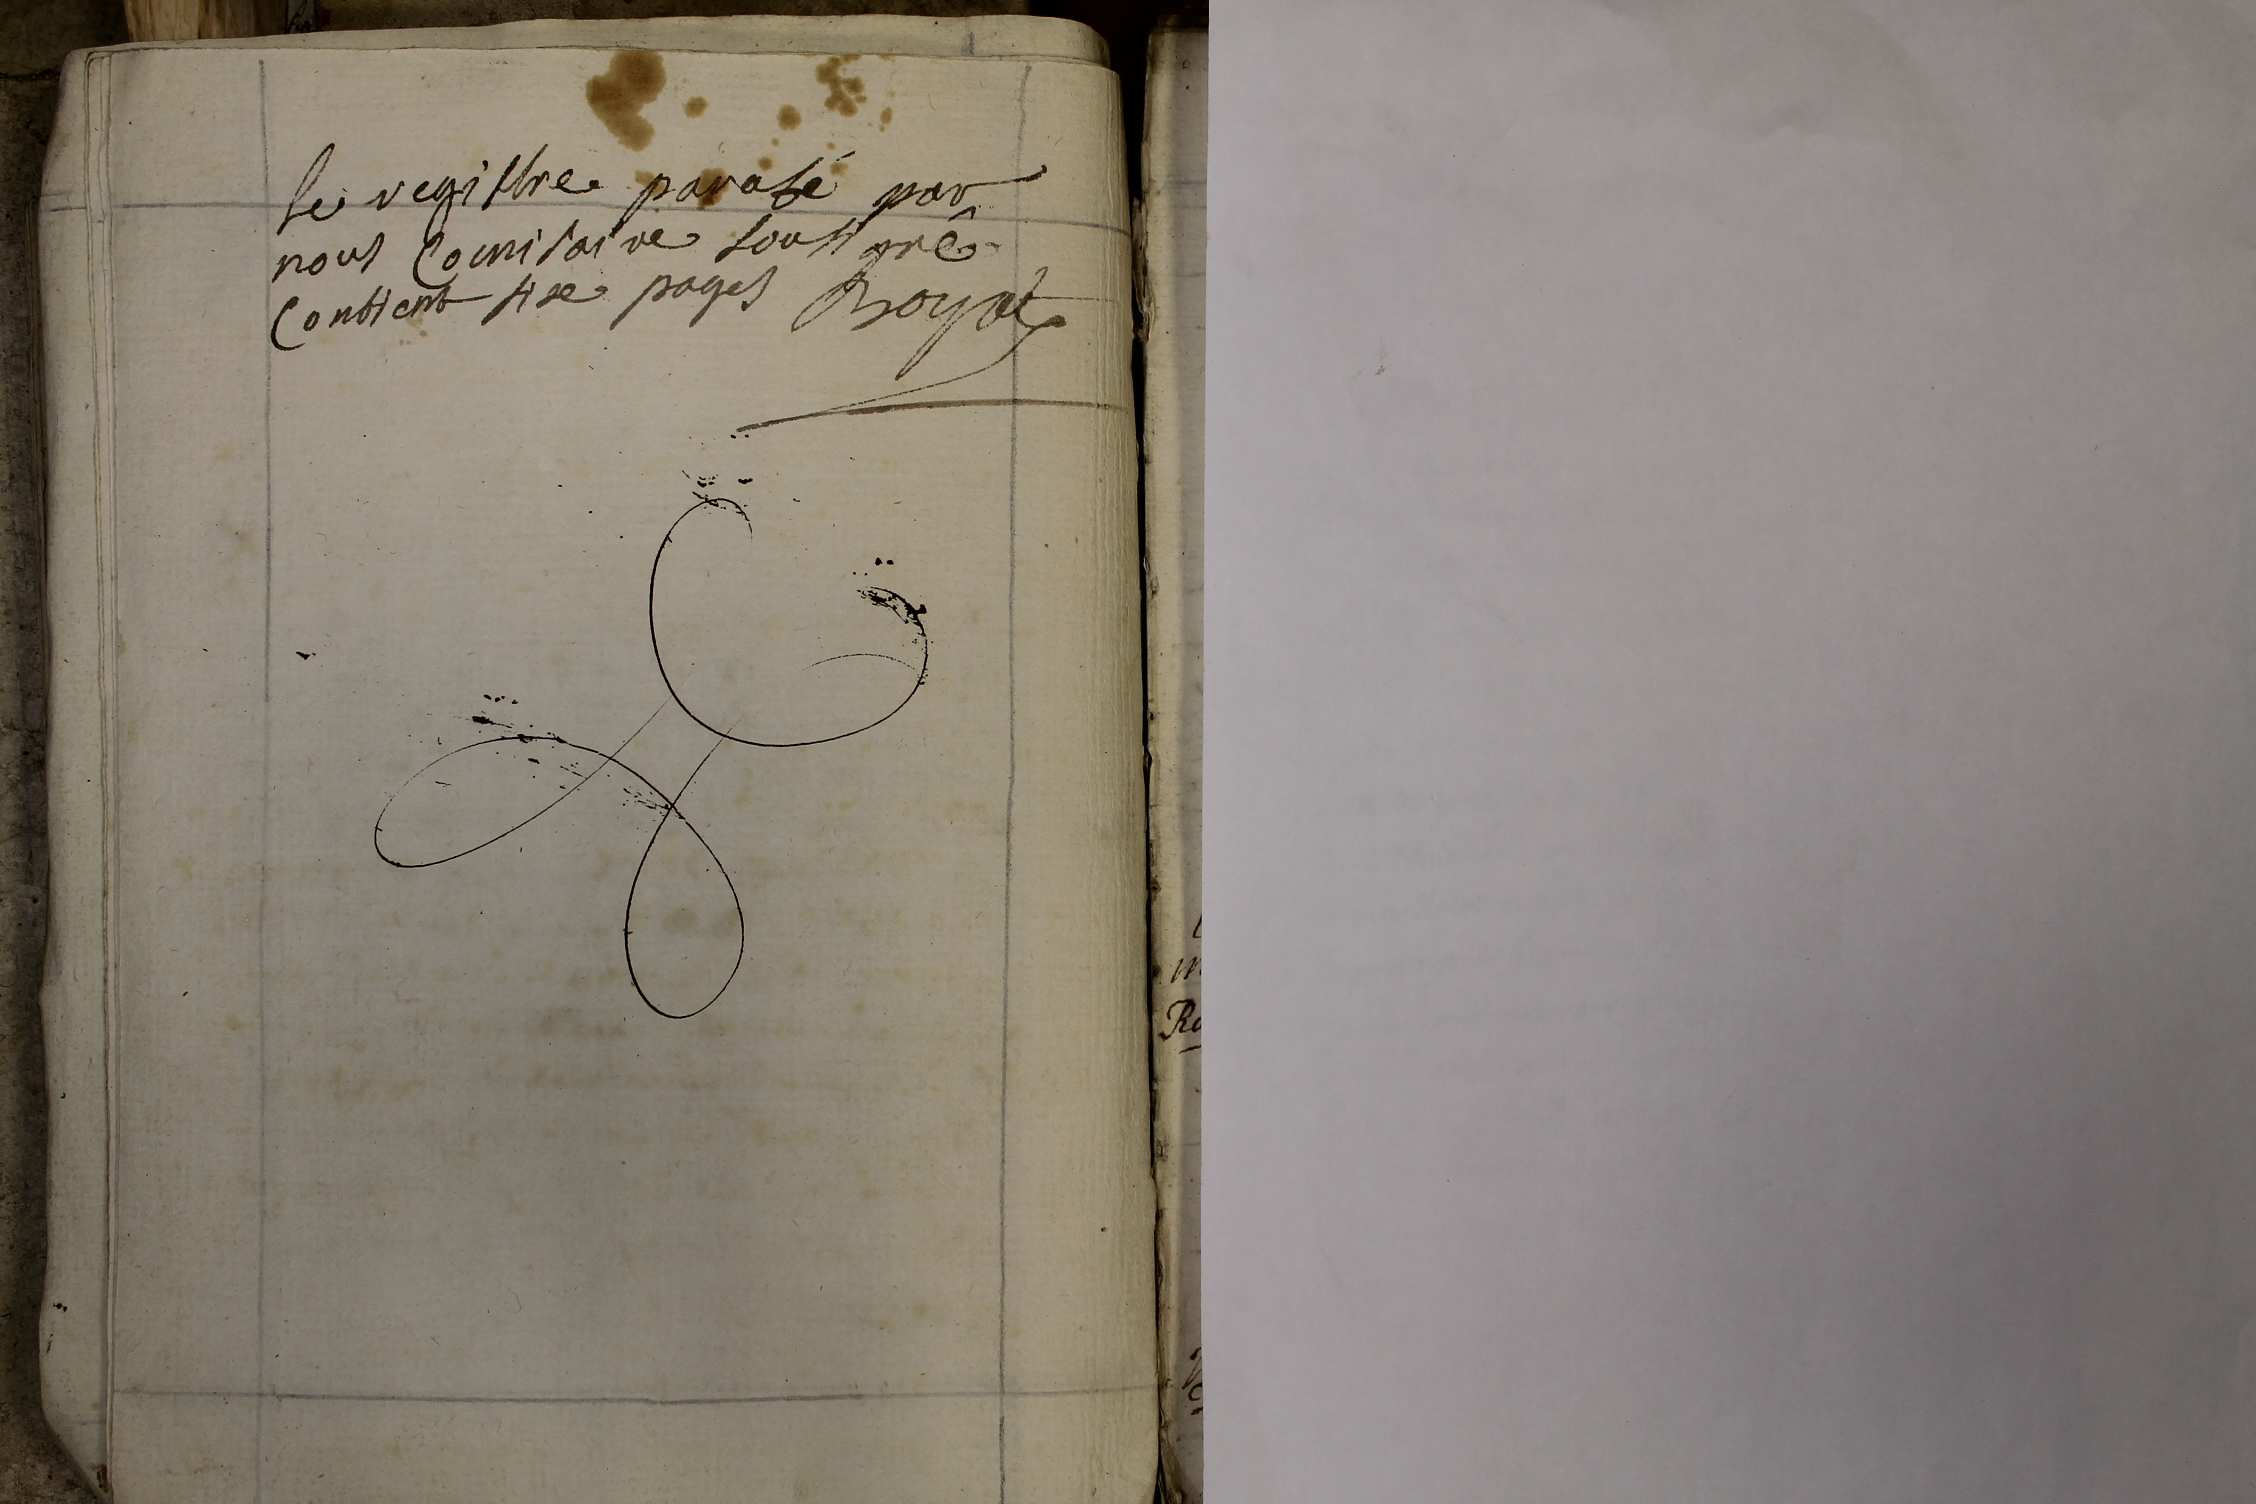 Le registre parafé par
nous Comisaire soussigné
Contient sise pages Royat
Re